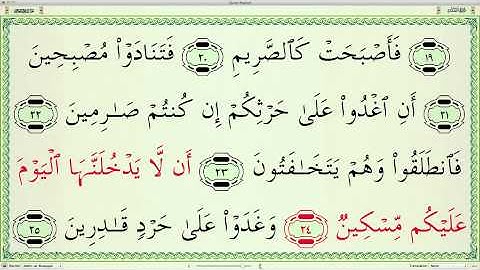 ١٩ فَأَصْبَحَتْ كَٱلصَّرِيمِ ٢٠ فَتَنَادَوْا۟ مُصْبِحِينَ
٢١ أَنِ ٱغْدُوا۟ عَلَىٰ حَرْثِكُمْ إِن كُنتُمْ صَـٰرِمِينَ ٢٢
فَٱنطَلَقُوا۟ وَهُمْ يَتَخَـٰفَتُونَ ٢٣ أَن لَّا يَدْخُلَنَّهَا ٱلْيَوْمَ
عَلَيْكُم مِّسْكِينٌ ٢٤ وَغَدَوْا۟ عَلَىٰ حَرْدٍ قَـٰدِرِينَ ٢٥